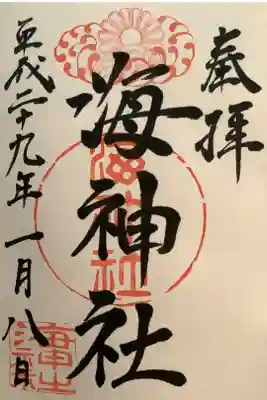 奉拝
海神社
海神社
平成二十九年一月八日